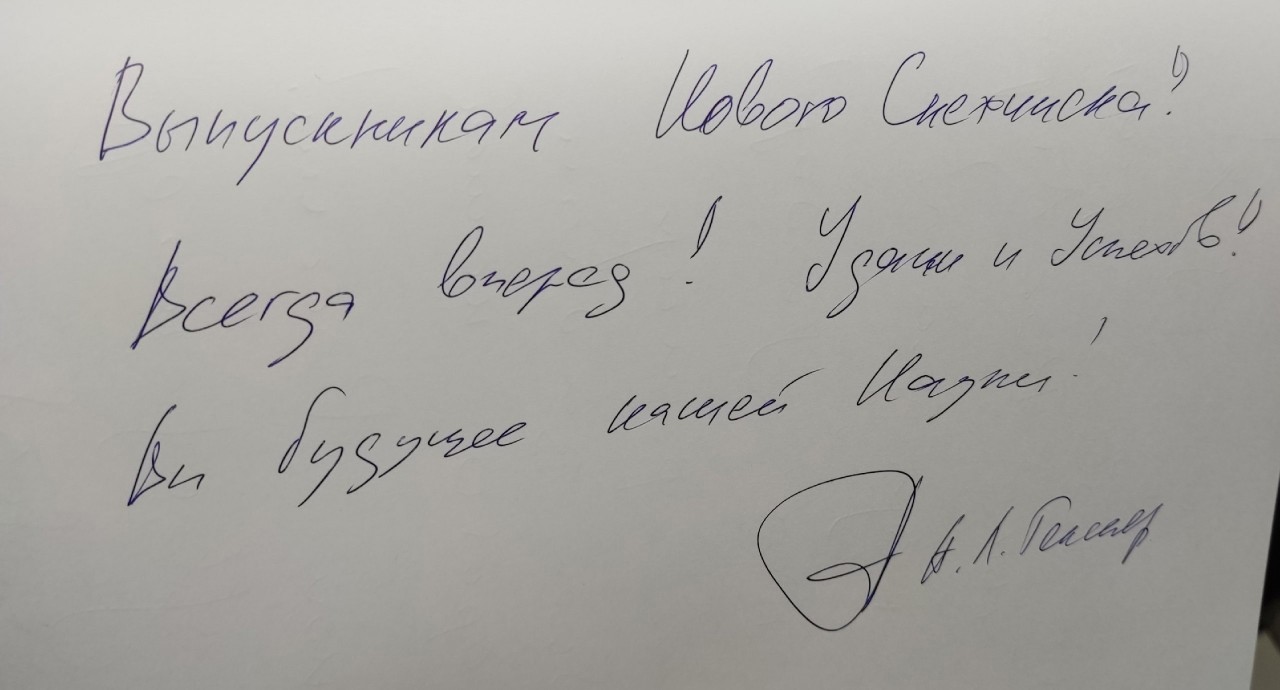 Выпускникам Нового Снежинска!
Всегда вперед! Удачи и Успехов!
Вы будущее нашей Науки!
А.Л.